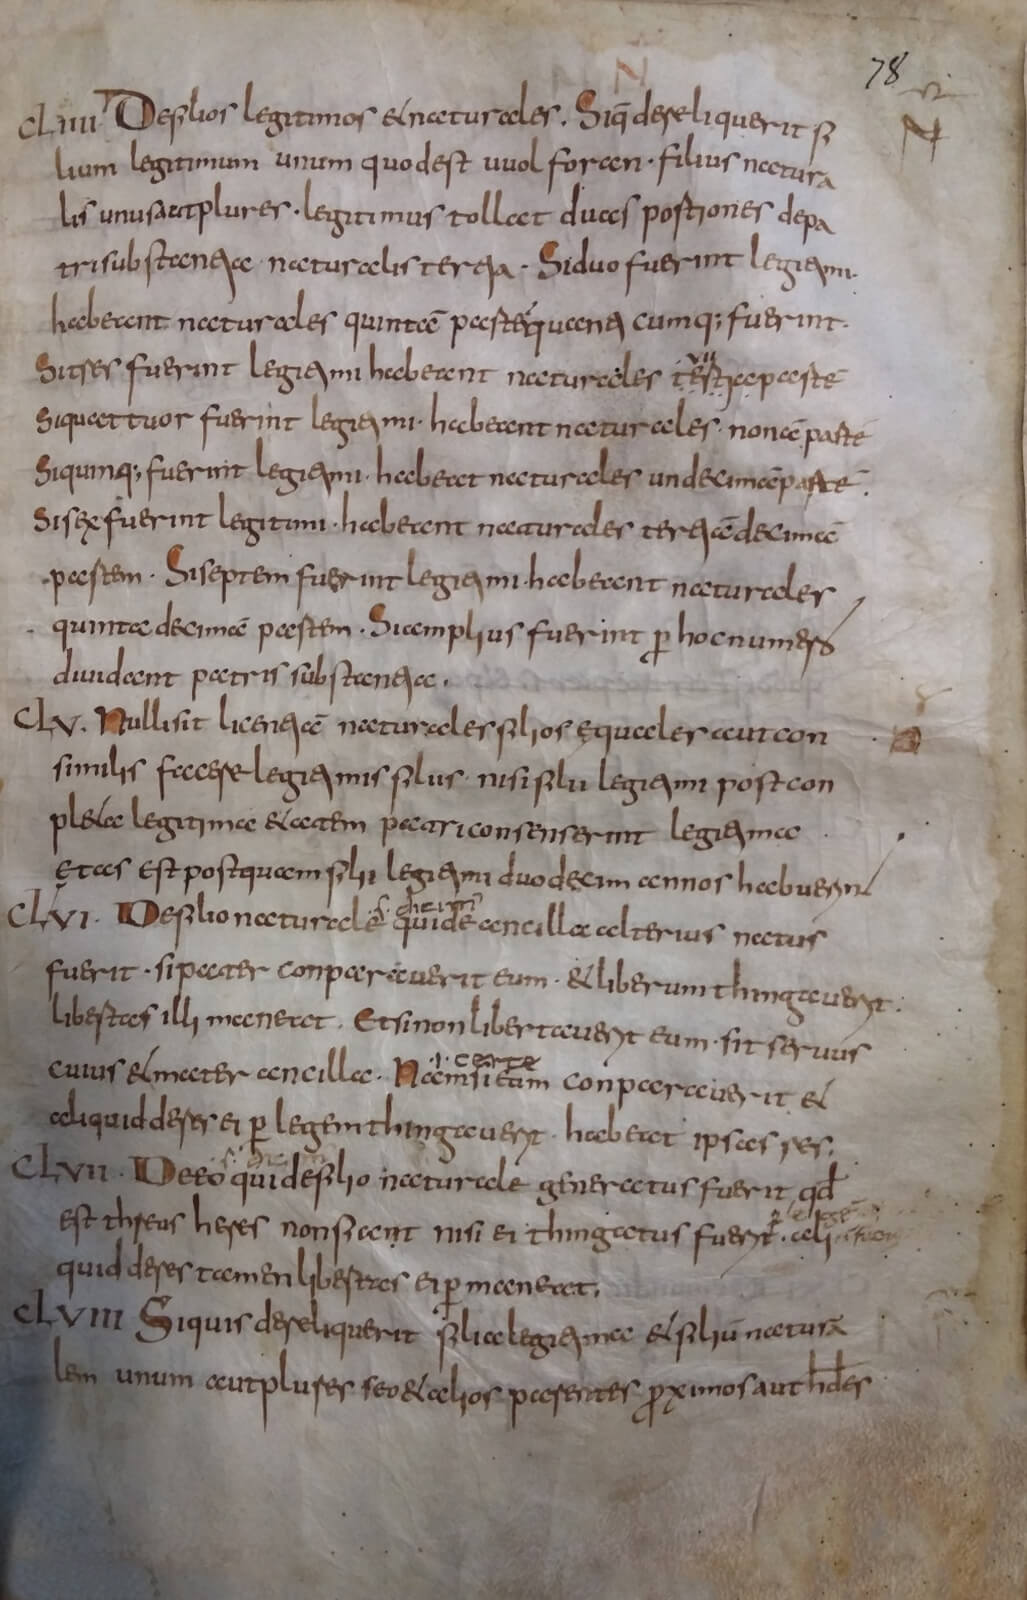 78
CLIIII De filios legitimos et naturales. Siq̄ dereliquerit fi
lium legitimum unum quod est uuol foran · filius natura
lis unus aut plures · legitimus tollat duas portiones de pa
tri substantia · naturalis tertia · Si duo fuerint legitimi ·
habeant naturales quintā partē quanti cumq; fuerint ·
Si tres fuerint legitimi habeant naturales partē
Si quattuor fuerint legitimi · habeant naturales · nonā partē
Si quinq; fuerint legitimi · habeat naturales undecimā partē ·
Si sex fuerint legitimi · habeant naturales tertiā decimā
partem · Si septem fuerint legitimi · habeant naturales
quinta decimā partem · Si amplius fuerint p̱ hoc numero
diuidant patris substantia ·
CLV. Nulli sit licentiā naturales filios ęquales aut con
similis facere legitimis filiis · nisi filii legitimi post con
pleta legitima etatem patri consenserint legitima
ętas est postquam filii legitimi duodecim annos habuerint
CLVI. De filio naturale qui de ancilla alterius natus
fuerit · si pater conparauerit eum · et liberum thingauerit ·
libertas illi maneat · Et si non libertauerit eum · sit seruus
cuius et mater ancilla · .i. certe Nam si eum conparauerit et
aliquid de rei p̱ legem thingauerit · habeat ipsas res.
CLVII. De eo qui de filio naturale generatus fuerit qđ
est threus heres non fiant nisi ei thingatus fuerit · ali
quid de res tamen libertas ei p̱maneat.
CLVIII Si quis dereliquerit filia legitima et filiū naturā
lem unum aut plures seo et alios parentes p̱ximos aut hđes